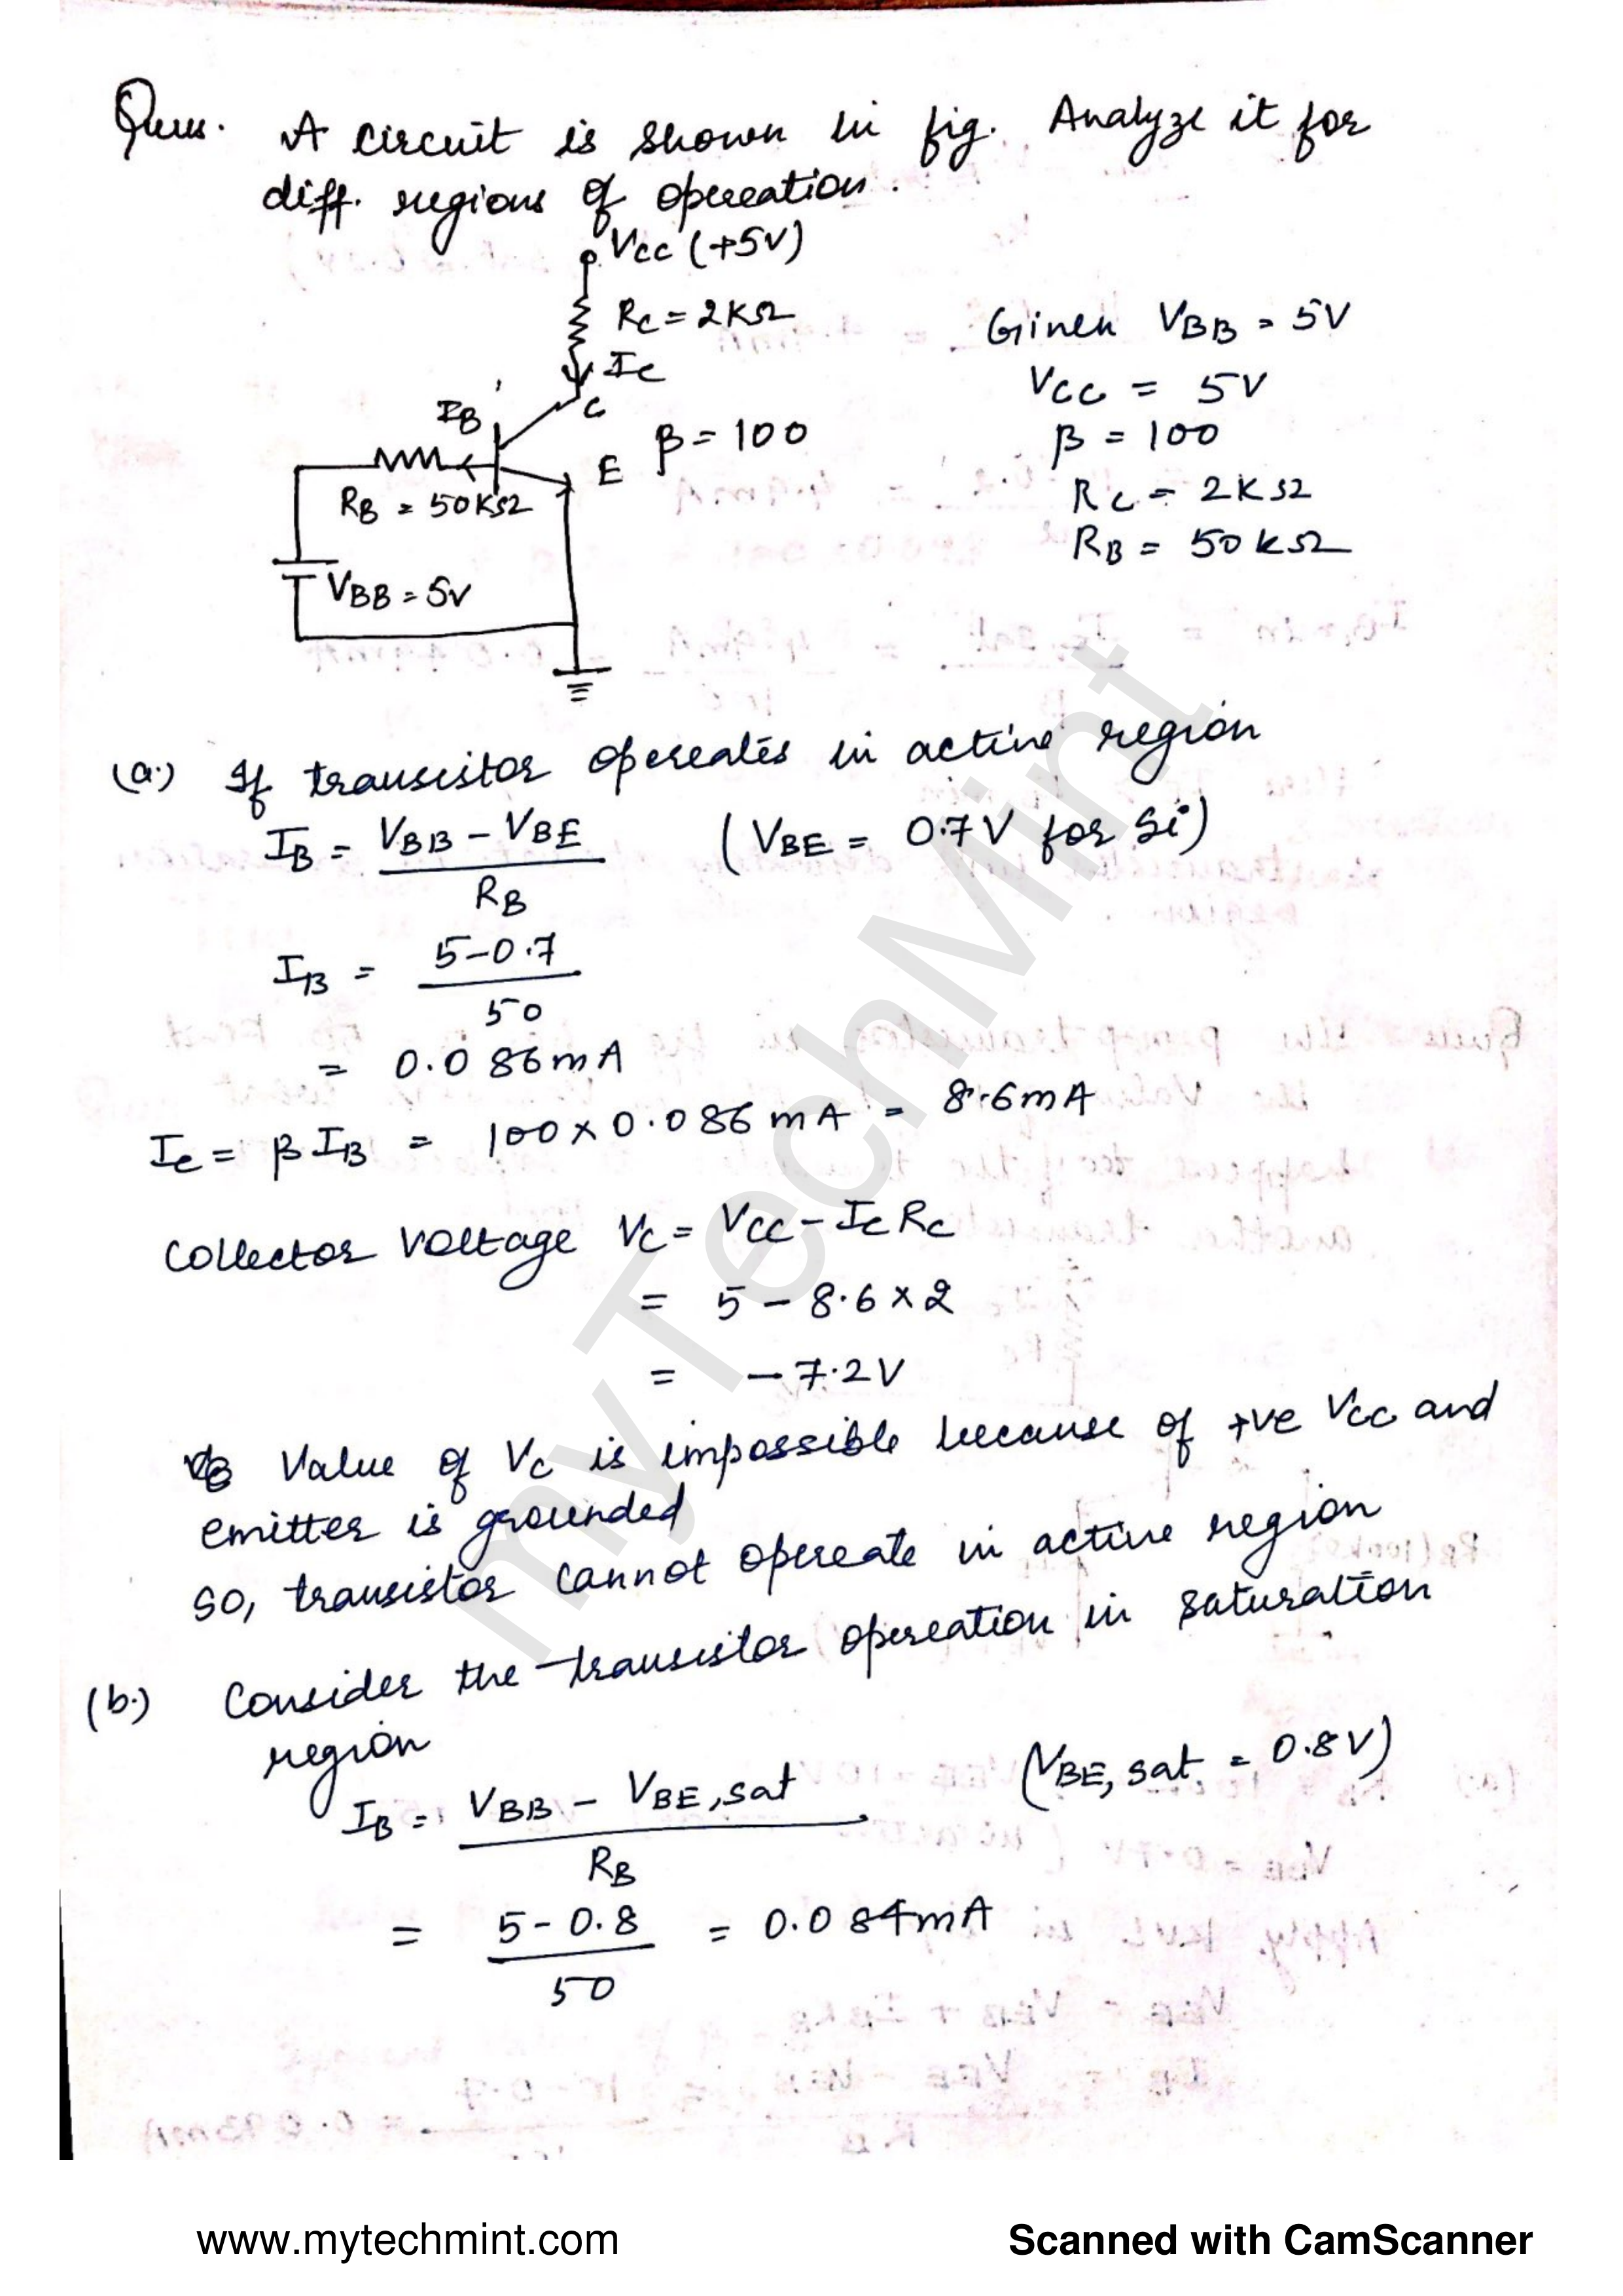 Ques. A circuit is shown in fig. Analyze it for
diff. regions of operation.
VCC (+5V)
RC = 2KΩ
IC
C
IB
β = 100
E
RB = 50KΩ
VBB = 5V
Given VBB = 5V
VCC = 5V
β = 100
RC = 2KΩ
RB = 50kΩ
(a.) If transistor operates in active region
IB = VBB - VBE / RB (VBE = 0.7V for Si)
IB = 5-0.7 / 50
= 0.086mA
IC = βIB = 100×0.086mA = 8.6mA
Collector Voltage VC = VCC - IC RC
= 5 - 8.6 × 2
= -7.2V
Value of VC is impossible because of +ve VCC and
emitter is grounded
So, transistor cannot operate in active region
(b.) Consider the transistor operation in saturation
region
IB = VBB - VBE,sat / RB (VBE,sat. = 0.8V)
= 5-0.8 / 50 = 0.084mA
myTechMint
www.mytechmint.com
Scanned with CamScanner